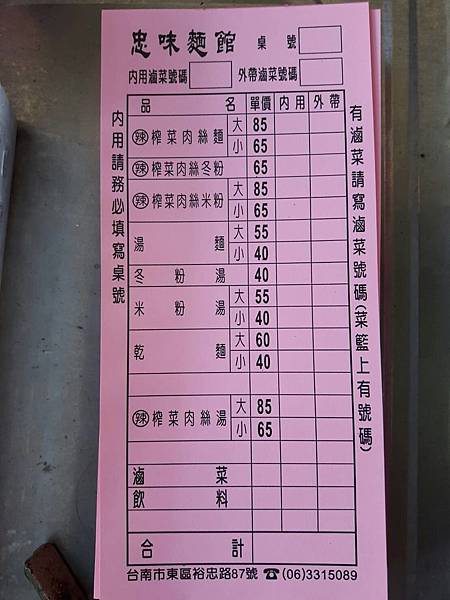 忠味麵館 桌號
內用滷菜號碼 外帶滷菜號碼
內用請務必填寫桌號
品名 單價 內用 外帶
辣 榨菜肉絲麵 大 85
小 65
辣 榨菜肉絲冬粉 65
辣 榨菜肉絲米粉 大 85
小 65
湯麵 大 55
小 40
冬粉湯 40
米粉湯 大 55
小 40
乾麵 大 60
小 40
辣 榨菜肉絲湯 大 85
小 65
滷菜
飲料
合計
有滷菜請寫滷菜號碼(菜籃上有號碼)
台南市東區裕忠路87號 ☎(06)3315089